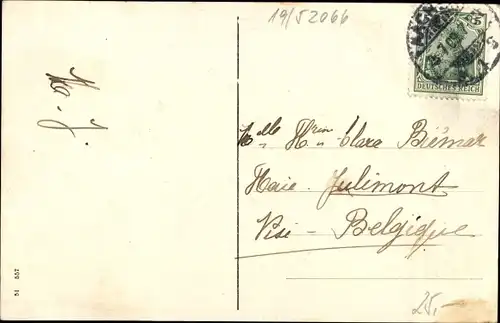 19/52066
5
DEUTSCHES REICH
Ma. J.
Mlle Hrin Clara Biémar
Haie. Julémont
Visé - Belgique
51 557
25,-